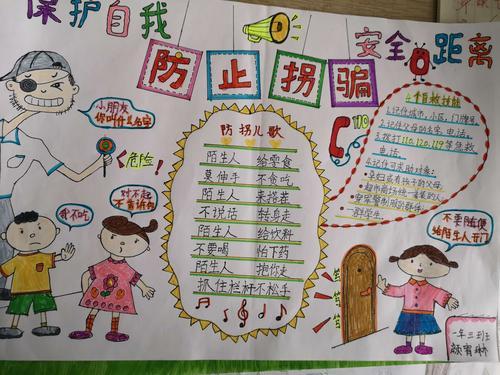 保护自我
安全距离
防止拐骗
小朋友
你叫什么名字
危险!
我不吃
对不起
不告诉你
防拐儿歌
陌生人 给零食
莫伸手 不贪吃
陌生人 来搭茬
不说话 转身走
陌生人 给饮料
不要喝 怕下药
陌生人 抱你走
抓住栏杆不松手
110
个自救技能
1.记住城市、小区、门牌号
2.记住父母的名字、电话。
3.拨打110、120、119等急救
电话。
4.记住可求助对象:
群学生。
不要随便
给陌生人开门
一年三班